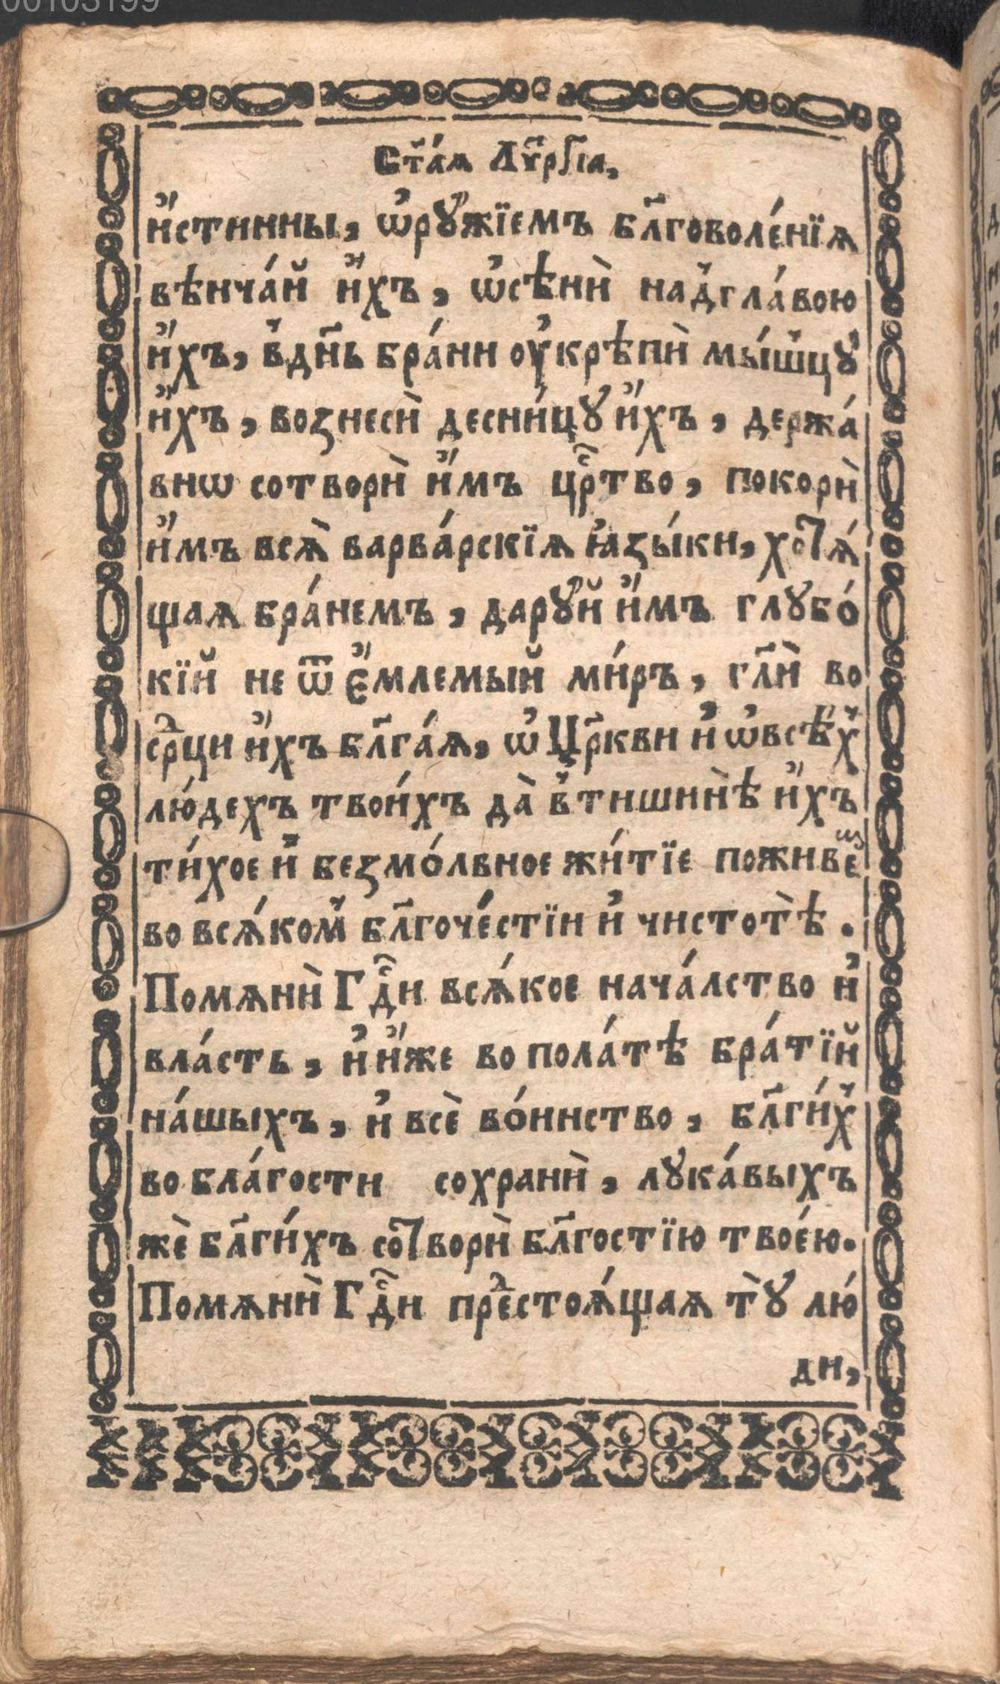 00103199
Ст҃а́ѧ Лѵрⷢ҇і́а,
и҆́стинны, ѡ҆рꙋ́жїемъ бл҃говоле́нїѧ
вѣнча́й и҆́хъ, ѡ҆сѣнѝ над̾гла́вою
и҆́хъ, в̾дн҃ь бра́ни ᲂу҆крѣпѝ мы́шцꙋ
и҆́хъ, вознесѝ десни́цꙋ и҆́хъ, держа́
внѡ сотворѝ и҆́мъ црⷭ҇тво, покорѝ
и҆́мъ всѧ̀ варва́рскїѧ ꙗ҆зы́ки, хотѧ́
щаѧ бра́немъ, дарꙋ́й и҆́мъ глꙋбо́
кїй не ѿ є҆́млемый ми́ръ, гл҃и во
срⷣци и҆́хъ бл҃га́ѧ, ѡ҆ Цр҃кви и҆ ѡ҆всѣ́х̾
лю́дехъ твои́хъ да̀ в̾тишинѣ̀ и҆́хъ
ти́хое и҆ безмо́лвное жи́тїе поживе́ⷨ
во всѧ́ком̾ бл҃гоче́стїи и҆ чистотѣ̀.
Помѧнѝ Гдⷭ҇и всѧ́кое нача́лство и҆
вла́сть, и҆ и҆́же во пола́тѣ бра́тїй
на́шыхъ, и҆ всѐ во́инство, бл҃ги́х̾
во бла́гости сохранѝ, лꙋка́выхъ
жѐ бл҃ги́хъ сотворѝ бл҃гостїю твое́ю.
Помѧнѝ Гдⷭ҇и прⷣестоѧ́щаѧ тꙋ̀ лю́
ди,